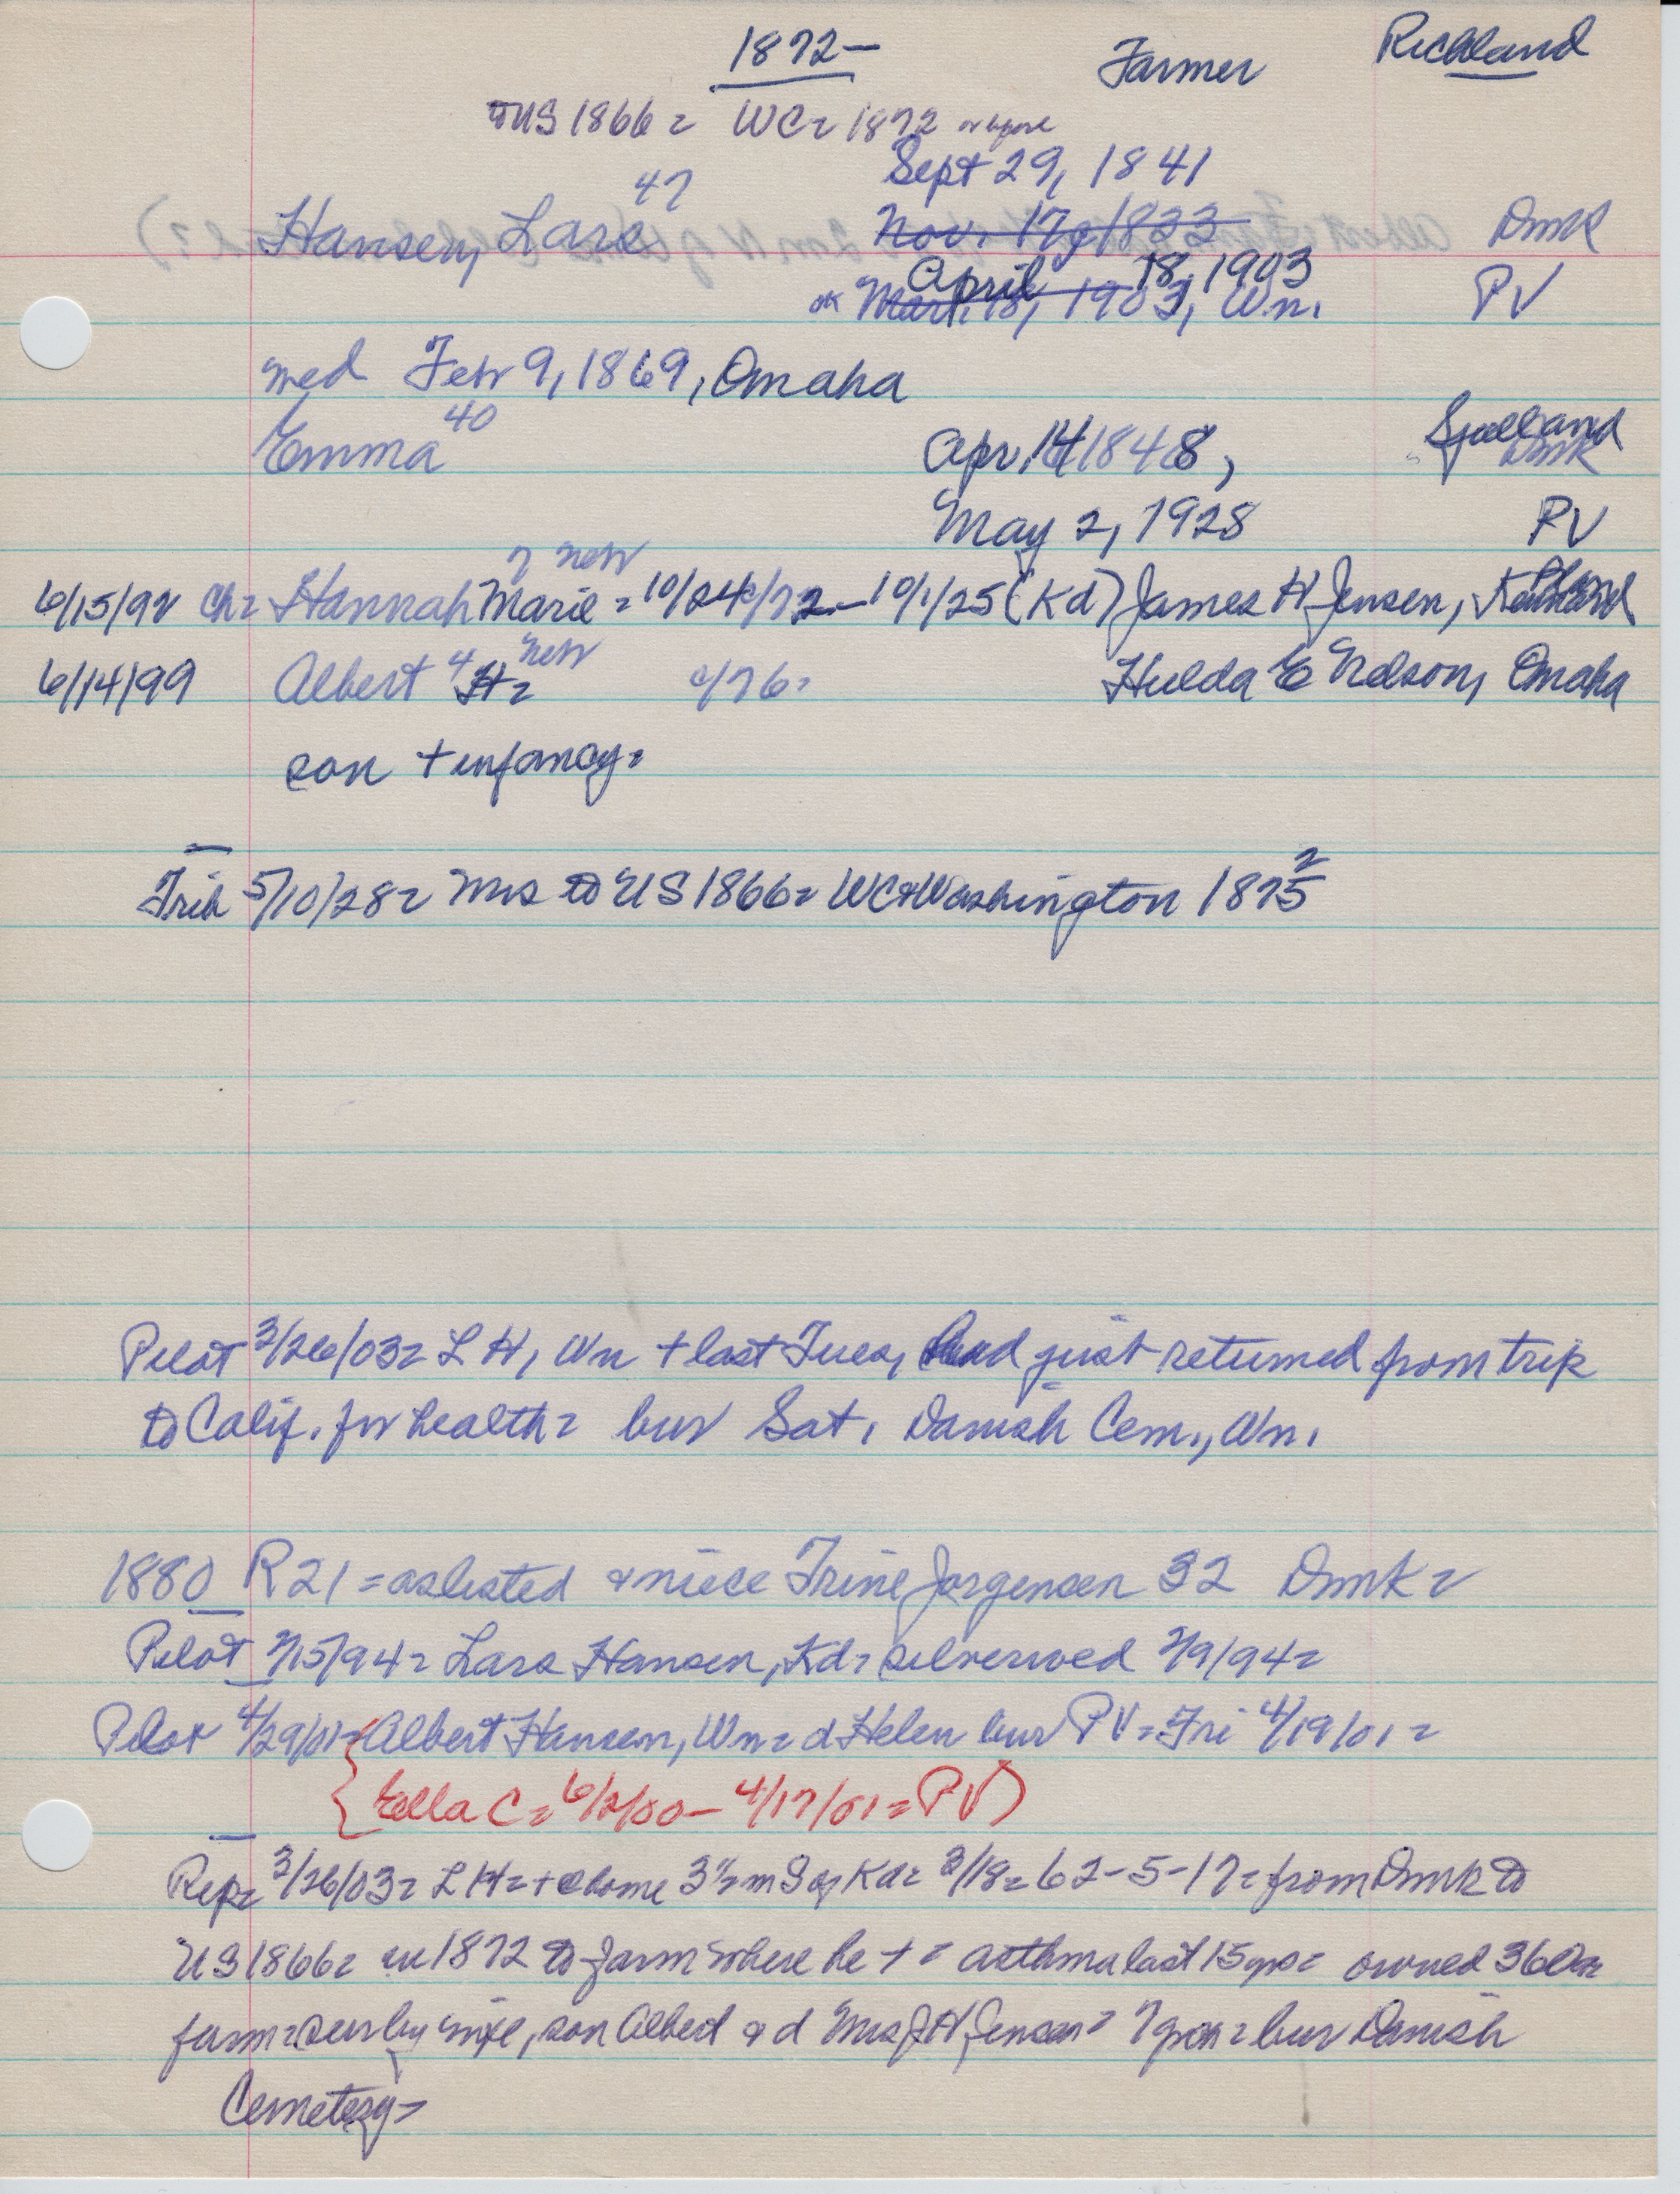 1872— Farmer Richland
to US 1866 = WC = 1872 or before
Sept 29, 1841
Hansen, Lars 47 Nov. 17, 1833 Dmk
April 18, 1903
ok Mar. 18, 1903, Wn. PV
med Febr 9, 1869, Omaha
Emma 40 Apr. 14 1848, Sjaelland Dmk
May 2, 1928 PV
7 nebr
6/15/92 Ch = Hannah Marie = 10/24/72 – 10/1/25 (Kd) James H Jensen,
6/14/99 Albert 4 H = nebr c/76 = Hulda E Nelson, Omaha
son + infancy =
Trib 5/10/28 = Mrs to US 1866 = WC & Washington 1875 2
Pilot 3/26/03 = L H, Wn + last Tues, had just returned from trip
to Calif. for health = bur Sat, Danish Cem., Wn.
1880 R 21 = as listed & niece Trine Jorgensen 32 Dmk =
Pilot 2/15/94 = Lars Hansen, Kd = silverwed 2/9/94 =
Pilot 4/29/01 = Albert Hansen, Wn = d Helen bur PV = Fri 4/19/01 =
{ Ella C = 6/2/00 – 4/17/01 = PV )
Rep = 3/26/03 = L H = + @ home 3 1/2 m S of Kd = 3/18 = 62-5-17 = from Dmk to
US 1866 = in 1872 to farm where he + = asthma last 15 yrs = owned 360 ac
farm = sur by wife, son Albert & d Mrs J H Jensen = 7 = bur Danish
Cemetery =